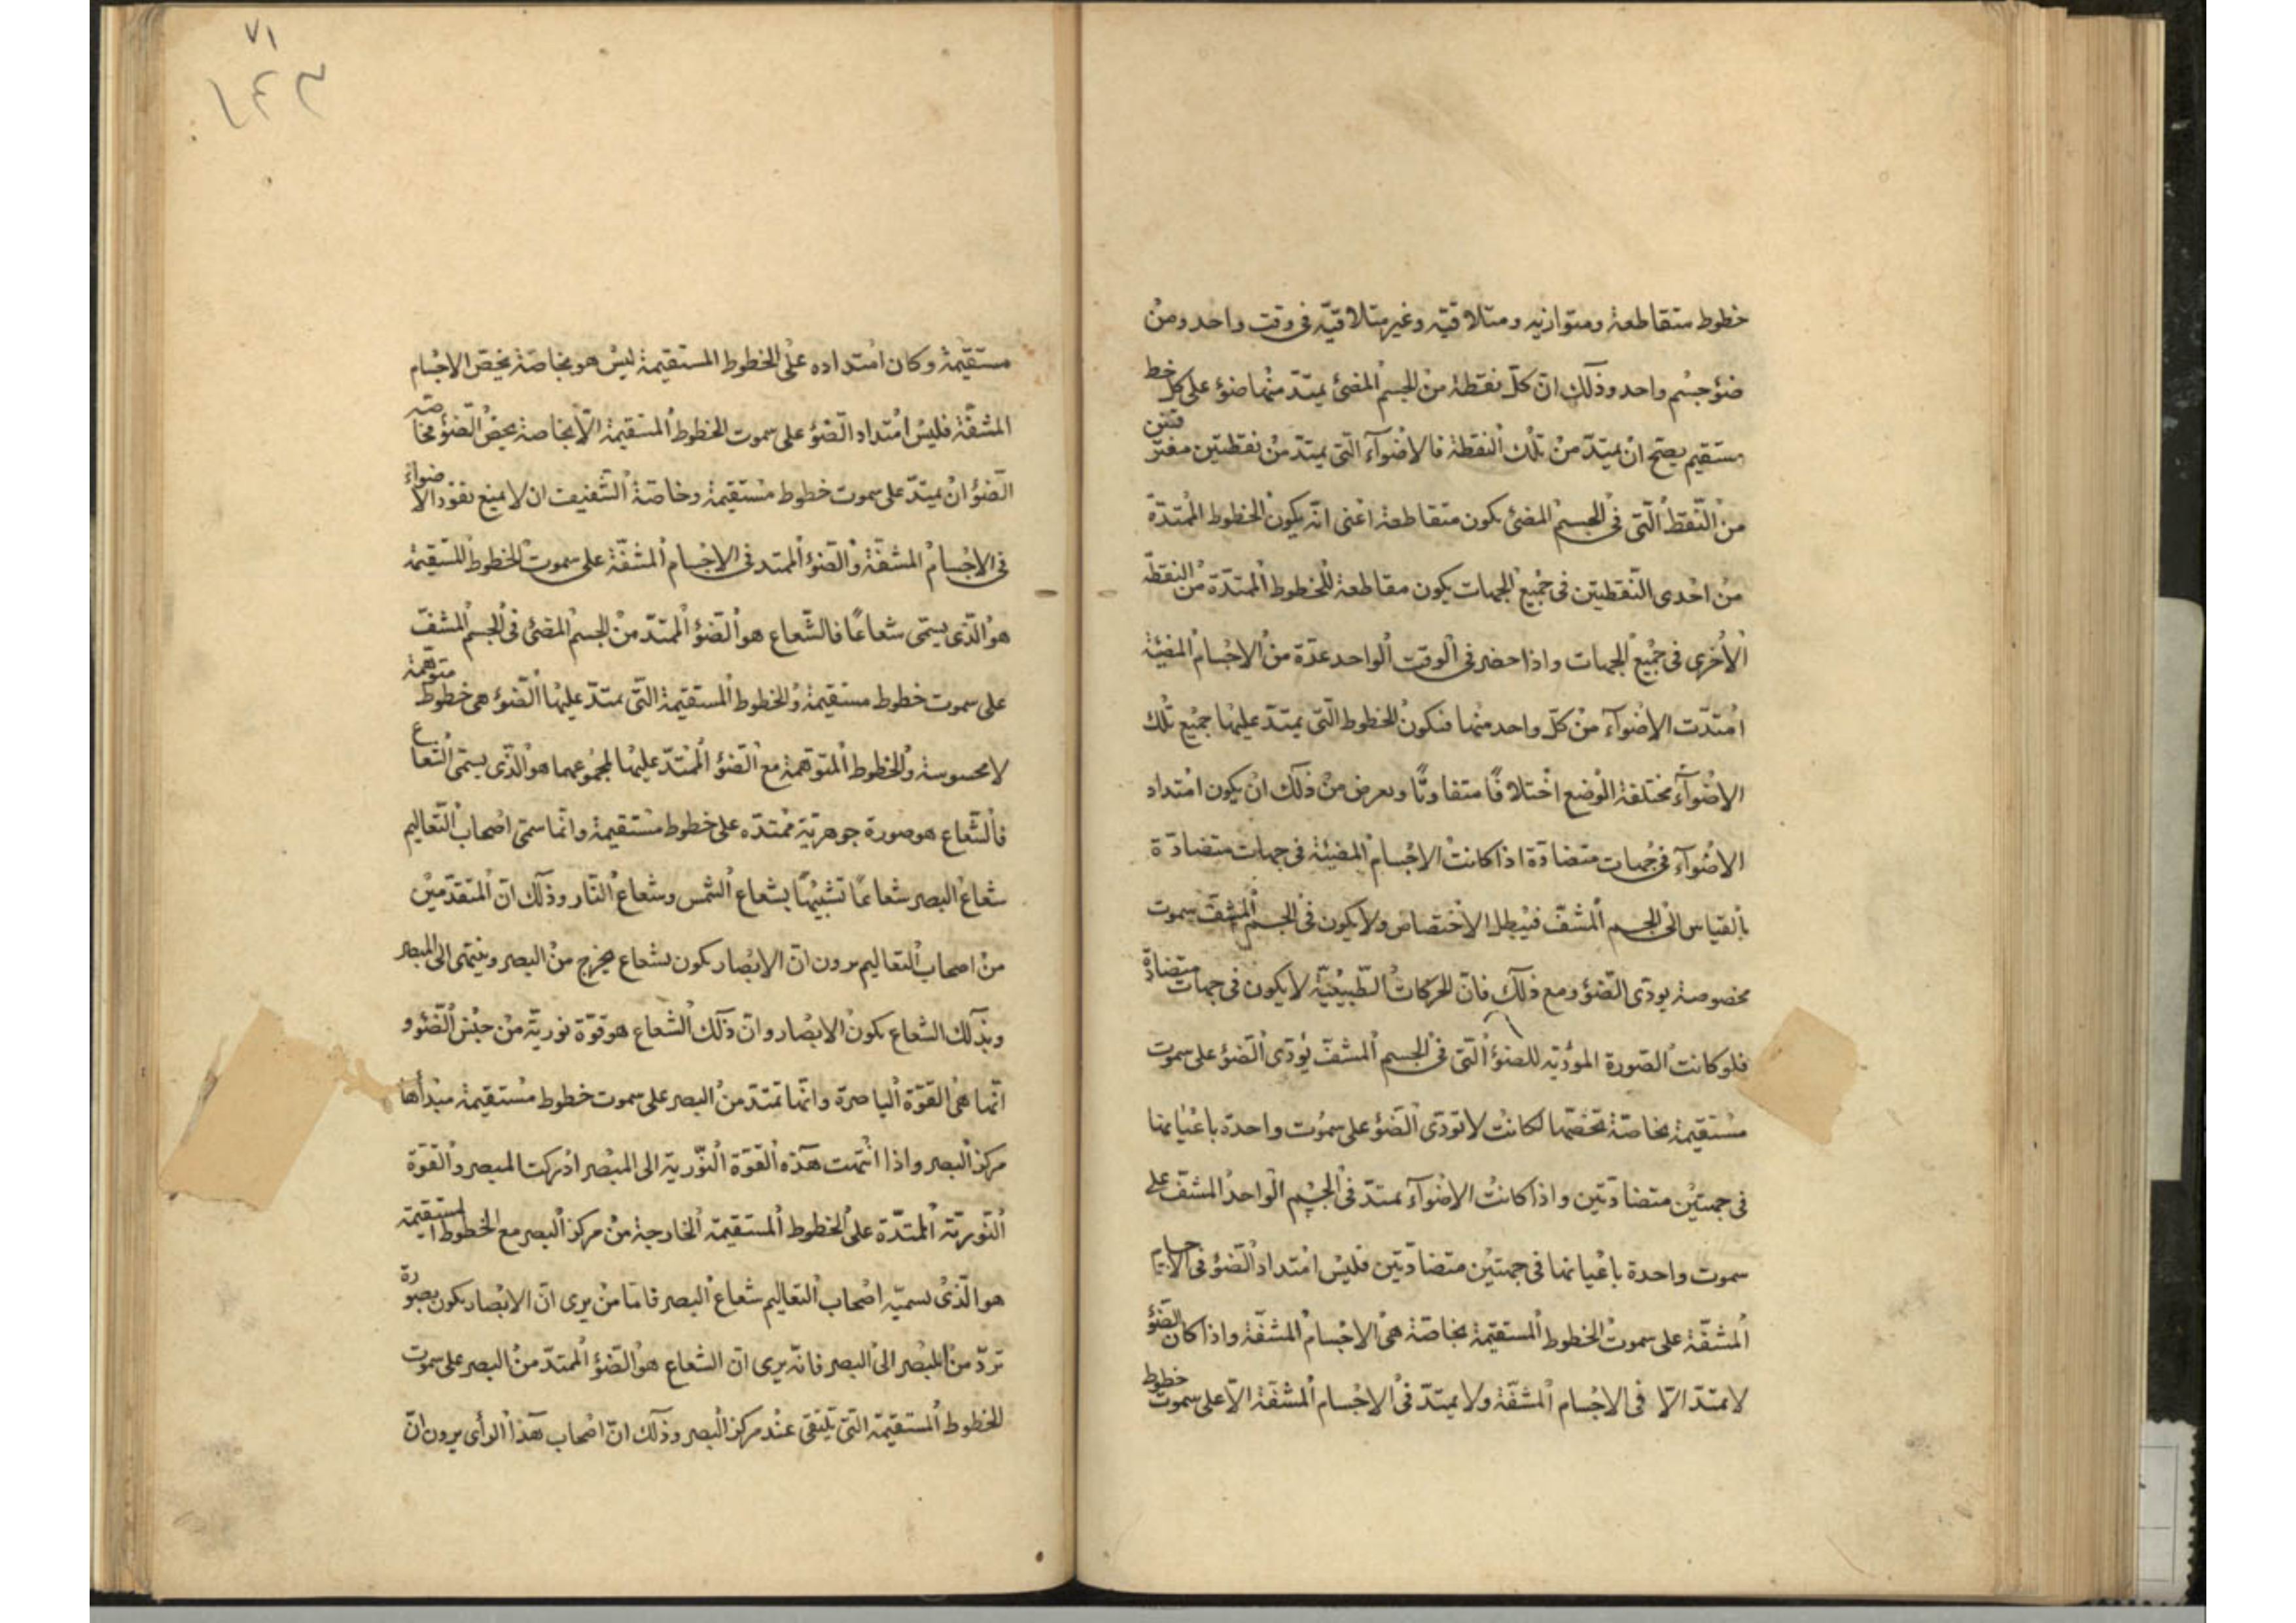 خطوط متقاطعة ومتوازيه ومتلاقيّه وغير متلاقيّه فى وقت واحد ومن
ضوٴ جسم واحد وذلك انّ كلّ نقطة من الجسم المضئ يمتدّ منها ضوٴ على كل خط
مستقيم يصحّ ان يمتدّ من تلك النقطة فالاضوآء الّتى يمتدّ من نقطتين مفترقتين
من النّقط الّتى فى الجسم المضئ يكون متقاطعة اعنى انّه يكون الخطوط الممتدّة
من احدى النّقطتين فى جميع الجهات يكون مقاطعة للخطوط الممتدّة من النقطة
الأخرى فى جميع الجهات واذا حضر فى الوقت الواحد عدّة من الاجسام المضيئة
امتدّت الاضوآء من كلّ واحد منها فتكون الخطوط الّتى يمتدّ عليها جميع تلك
الاضوآء مختلفة الوضع اختلافًا متفاوتًا ويعرض من ذلك ان يكون امتداد
الاضوآء فى جهات متضادّة اذا كانت الاجسام المضيئة فى جهات متضادّة
بالقياس الى الجسم المشفّ فيبطل الاختصاص ولا يكون فى الجسم المشفّ سموت
مخصوصة يودّى الضّوٴ ومع ذلك فانّ الحركات الطّبيعيّة لا يكون فى جهات متضادّة
فلو كانت الصّورة الموٴدّيه للضوٴ الّتى فى الجسم المشفّ يوٴدّى الضّوٴ على سموت
مستقيمة بخاصّة تخصّها لكانت لا توٴدّى الضّوٴ على سموت واحدة باعيانها
فى جهتين متضادّتين واذا كانت الاضوآء يمتدّ فى الجسم الواحد المشفّ على
سموت واحدة باعيانها فى جهتين متضادّتين فليس امتداد الضّوٴ فى الاجسام
المشفّة على سموت الخطوط المستقيمة بخاصّة هى الاجسام المشفّة واذا كان الضّوٴ
لا يمتدّ الّا فى الاجسام المشفّة ولا يمتدّ فى الاجسام المشفّة الّا على سموت خطوط
مستقيمة وكان امتداده على الخطوط المستقيمة ليس هو بخاصّة يخصّ الاجسام
المشفّة فليس امتداد الضّوٴ على سموت الخطوط المستقيمة الّا بخاصة يخصّ الضّوٴ فخاصّة
الضّوٴ ان يمتدّ على سموت خطوط مستقيمة وخاصّة الشّفيف ان لا يمنع نفوذ الاضواء
فى الاجسام المشفّة والضّوٴ الممتد فى الاجسام المشفّة على سموت الخطوط المستقيمة
هو الّذى يسمّى شعاعًا فالشّعاع هو الضّوٴ الممتدّ من الجسم المضئ فى الجسم المشفّ
على سموت خطوط مستقيمة والخطوط المستقيمة الّتى يمتدّ عليها الضّوٴ هى خطوط متوهّمة
لا محسوسة والخطوط المتوهّمة مع الضّوٴ الممتدّ عليها لمجموعهما هو الّذى يسمّى الشّعاع
فالشّعاع هو صورة جوهريّة ممتدّه على خطوط مستقيمة وانّما سمّى اصحاب التّعاليم
شعاع البصر شعاعًا تشبيهًا بشعاع الشّمس وشعاع النّار وذلك انّ المتقدّمين
من اصحاب التعاليم يرون انّ الابصار يكون بشعاع يخرج من البصر وينتهى الى المبصر
وبذلك الشعاع يكون الابصار وانّ ذلك الشّعاع هو قوّة نوريّة من جنس الضّوٴ و
انّها هى القوّة الباصرة وانّها تمتدّ من البصر على سموت خطوط مستقيمة مبدأها
مركز البصر واذا انتهت هذه القوّة النّوريّة الى المبصر ادركت المبصر والقوّة
النّوريّة الممتدّة على الخطوط المستقيمة الخارجة من مركز البصر مع الخطوط المستقيمة
هو الّذى يسميّه اصحاب التعاليم شعاع البصر فامّا من يرى انّ الابصار يكون بصورة
تردّ من المبصر الى البصر فانّه يرى انّ الشعاع هو الضّوٴ الممتدّ من البصر على سموت
الخطوط المستقيمة الّتى يلتقى عند مركز البصر وذلك انّ اصحاب هذا الرأى يرون انّ
٧١